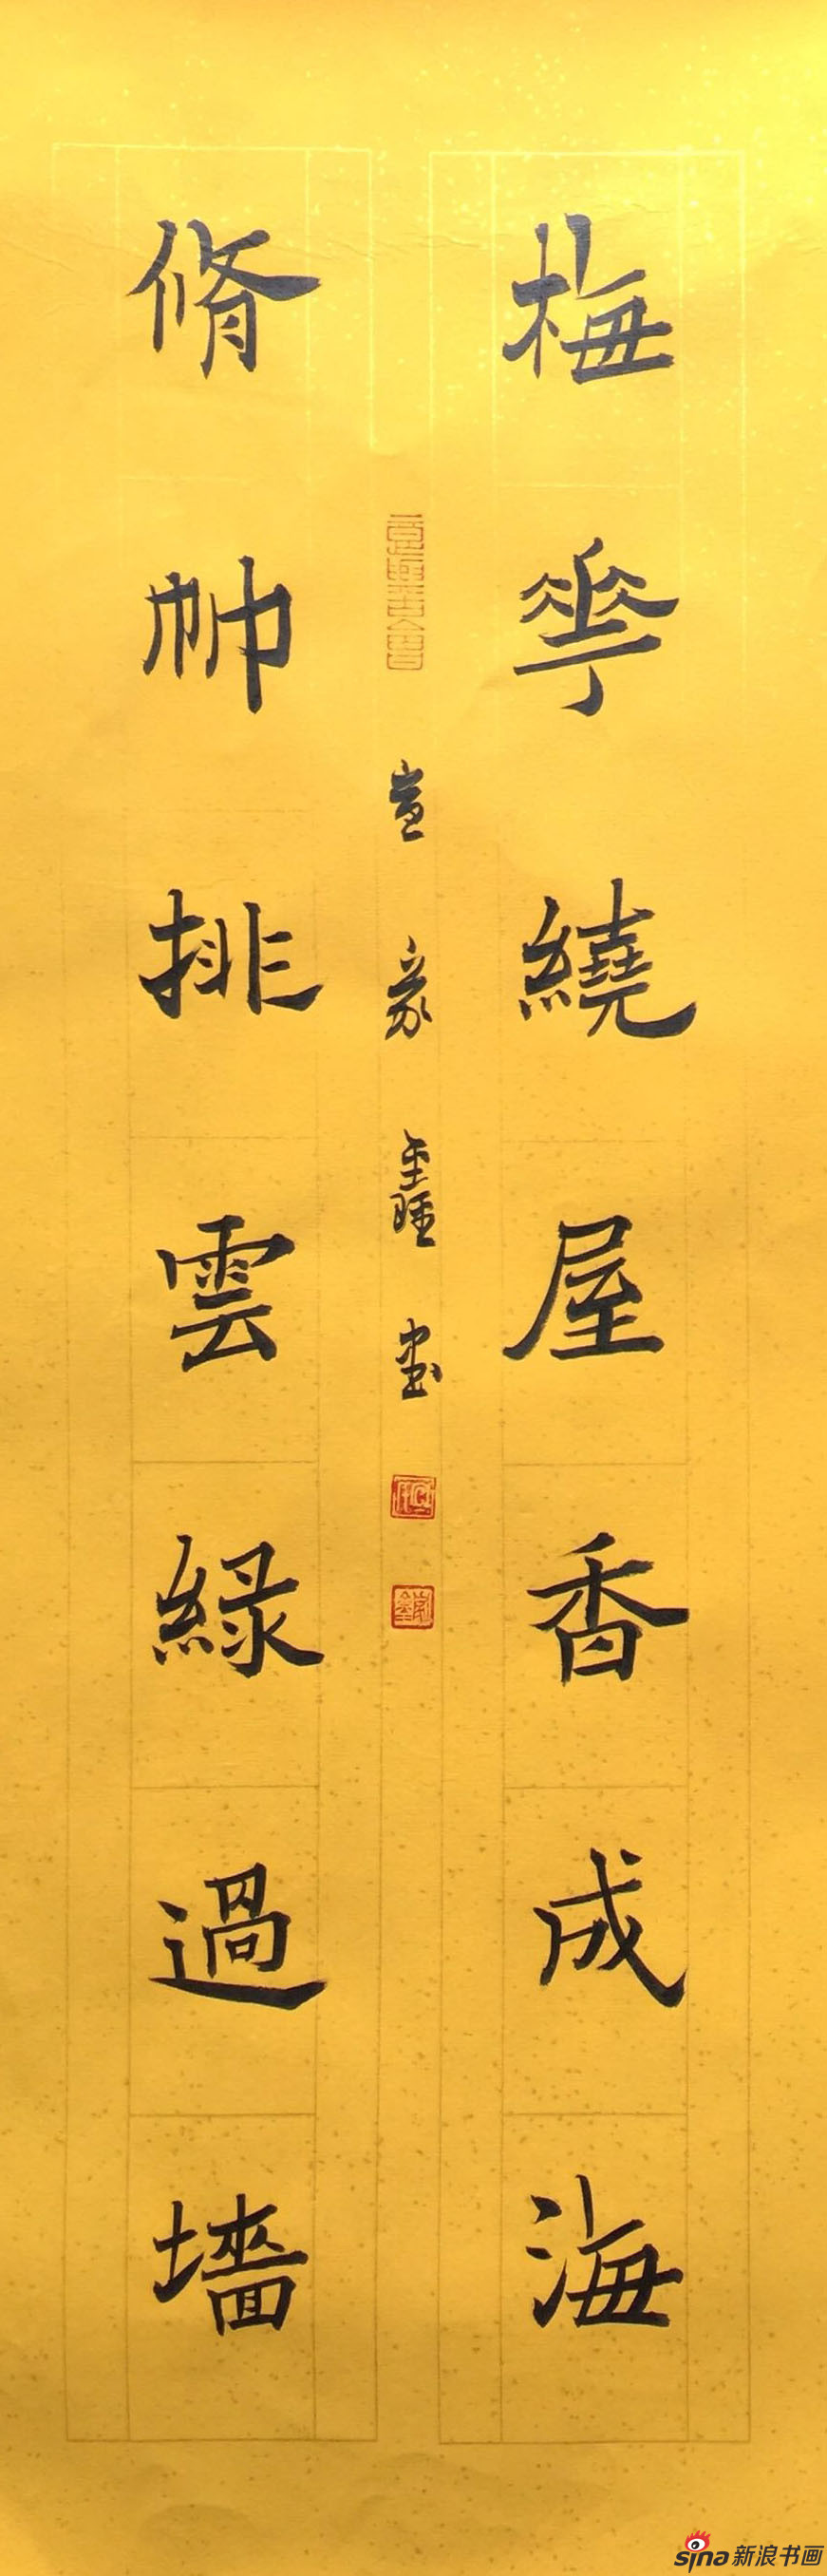 梅華繞屋香成海
脩竹排雲綠過墻
sina 新浪书画